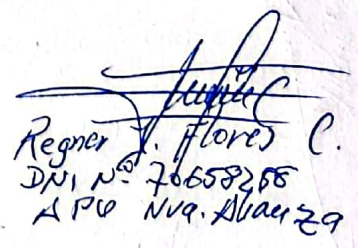 Regner J. Flores C.
DNI Nº 70658258
APU Nva. Alianza